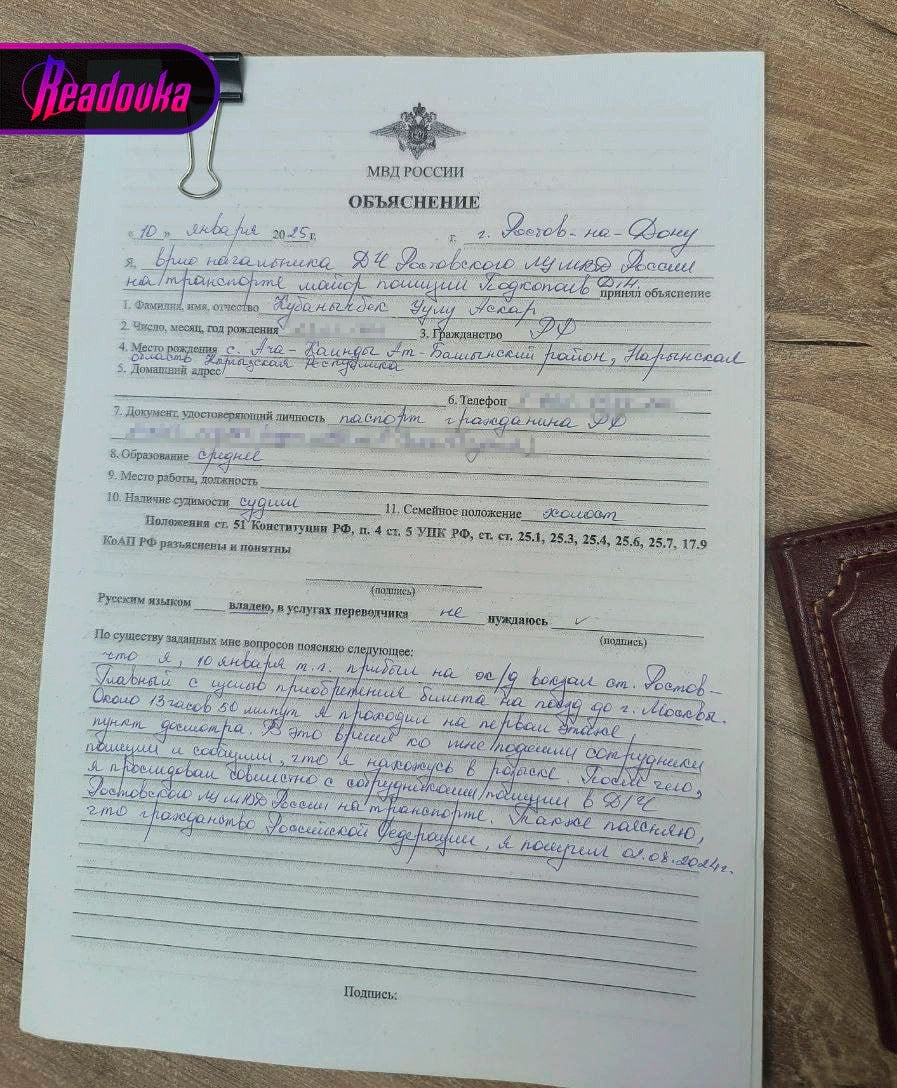 Readovka
МВД РОССИИ
ОБЪЯСНЕНИЕ
« 10 » января 2025 г. г. г. Ростов-на-Дону
Я, врио начальника ДЧ Ростовского ЛУ МВД России
на транспорте майор полиции Подкопаев Д.Н. принял объяснение
1. Фамилия, имя, отчество Кубанычбек Уулу Аскар
2. Число, месяц, год рождения 3. Гражданство РФ
4. Место рождения с. Ача-Каинды Ат-Башынский район, Нарынская
область Кыргызская Республика
5. Домашний адрес
6. Телефон
7. Документ, удостоверяющий личность паспорт гражданина РФ
8. Образование среднее
9. Место работы, должность
10. Наличие судимости судим 11. Семейное положение холост
Положения ст. 51 Конституции РФ, п. 4 ст. 5 УПК РФ, ст. ст. 25.1, 25.3, 25.4, 25.6, 25.7, 17.9
КоАП РФ разъяснены и понятны
(подпись)
Русским языком владею, в услугах переводчика не нуждаюсь
(подпись)
По существу заданных мне вопросов поясняю следующее:
что я, 10 января т.г. прибыл на ж/д вокзал ст. Ростов-
Главный с целью приобретения билета на поезд до г. Москвы.
Около 13 часов 50 минут я проходил на первом этаже,
пункт досмотра. В это время ко мне подошли сотрудники
полиции и сообщили, что я нахожусь в розыске. После чего,
я проследовал совместно с сотрудниками полиции в ДЧ
Ростовского ЛУ МВД России на транспорте. Также поясняю,
что гражданство Российской Федерации, я получил 01.08.2024г.
Подпись: